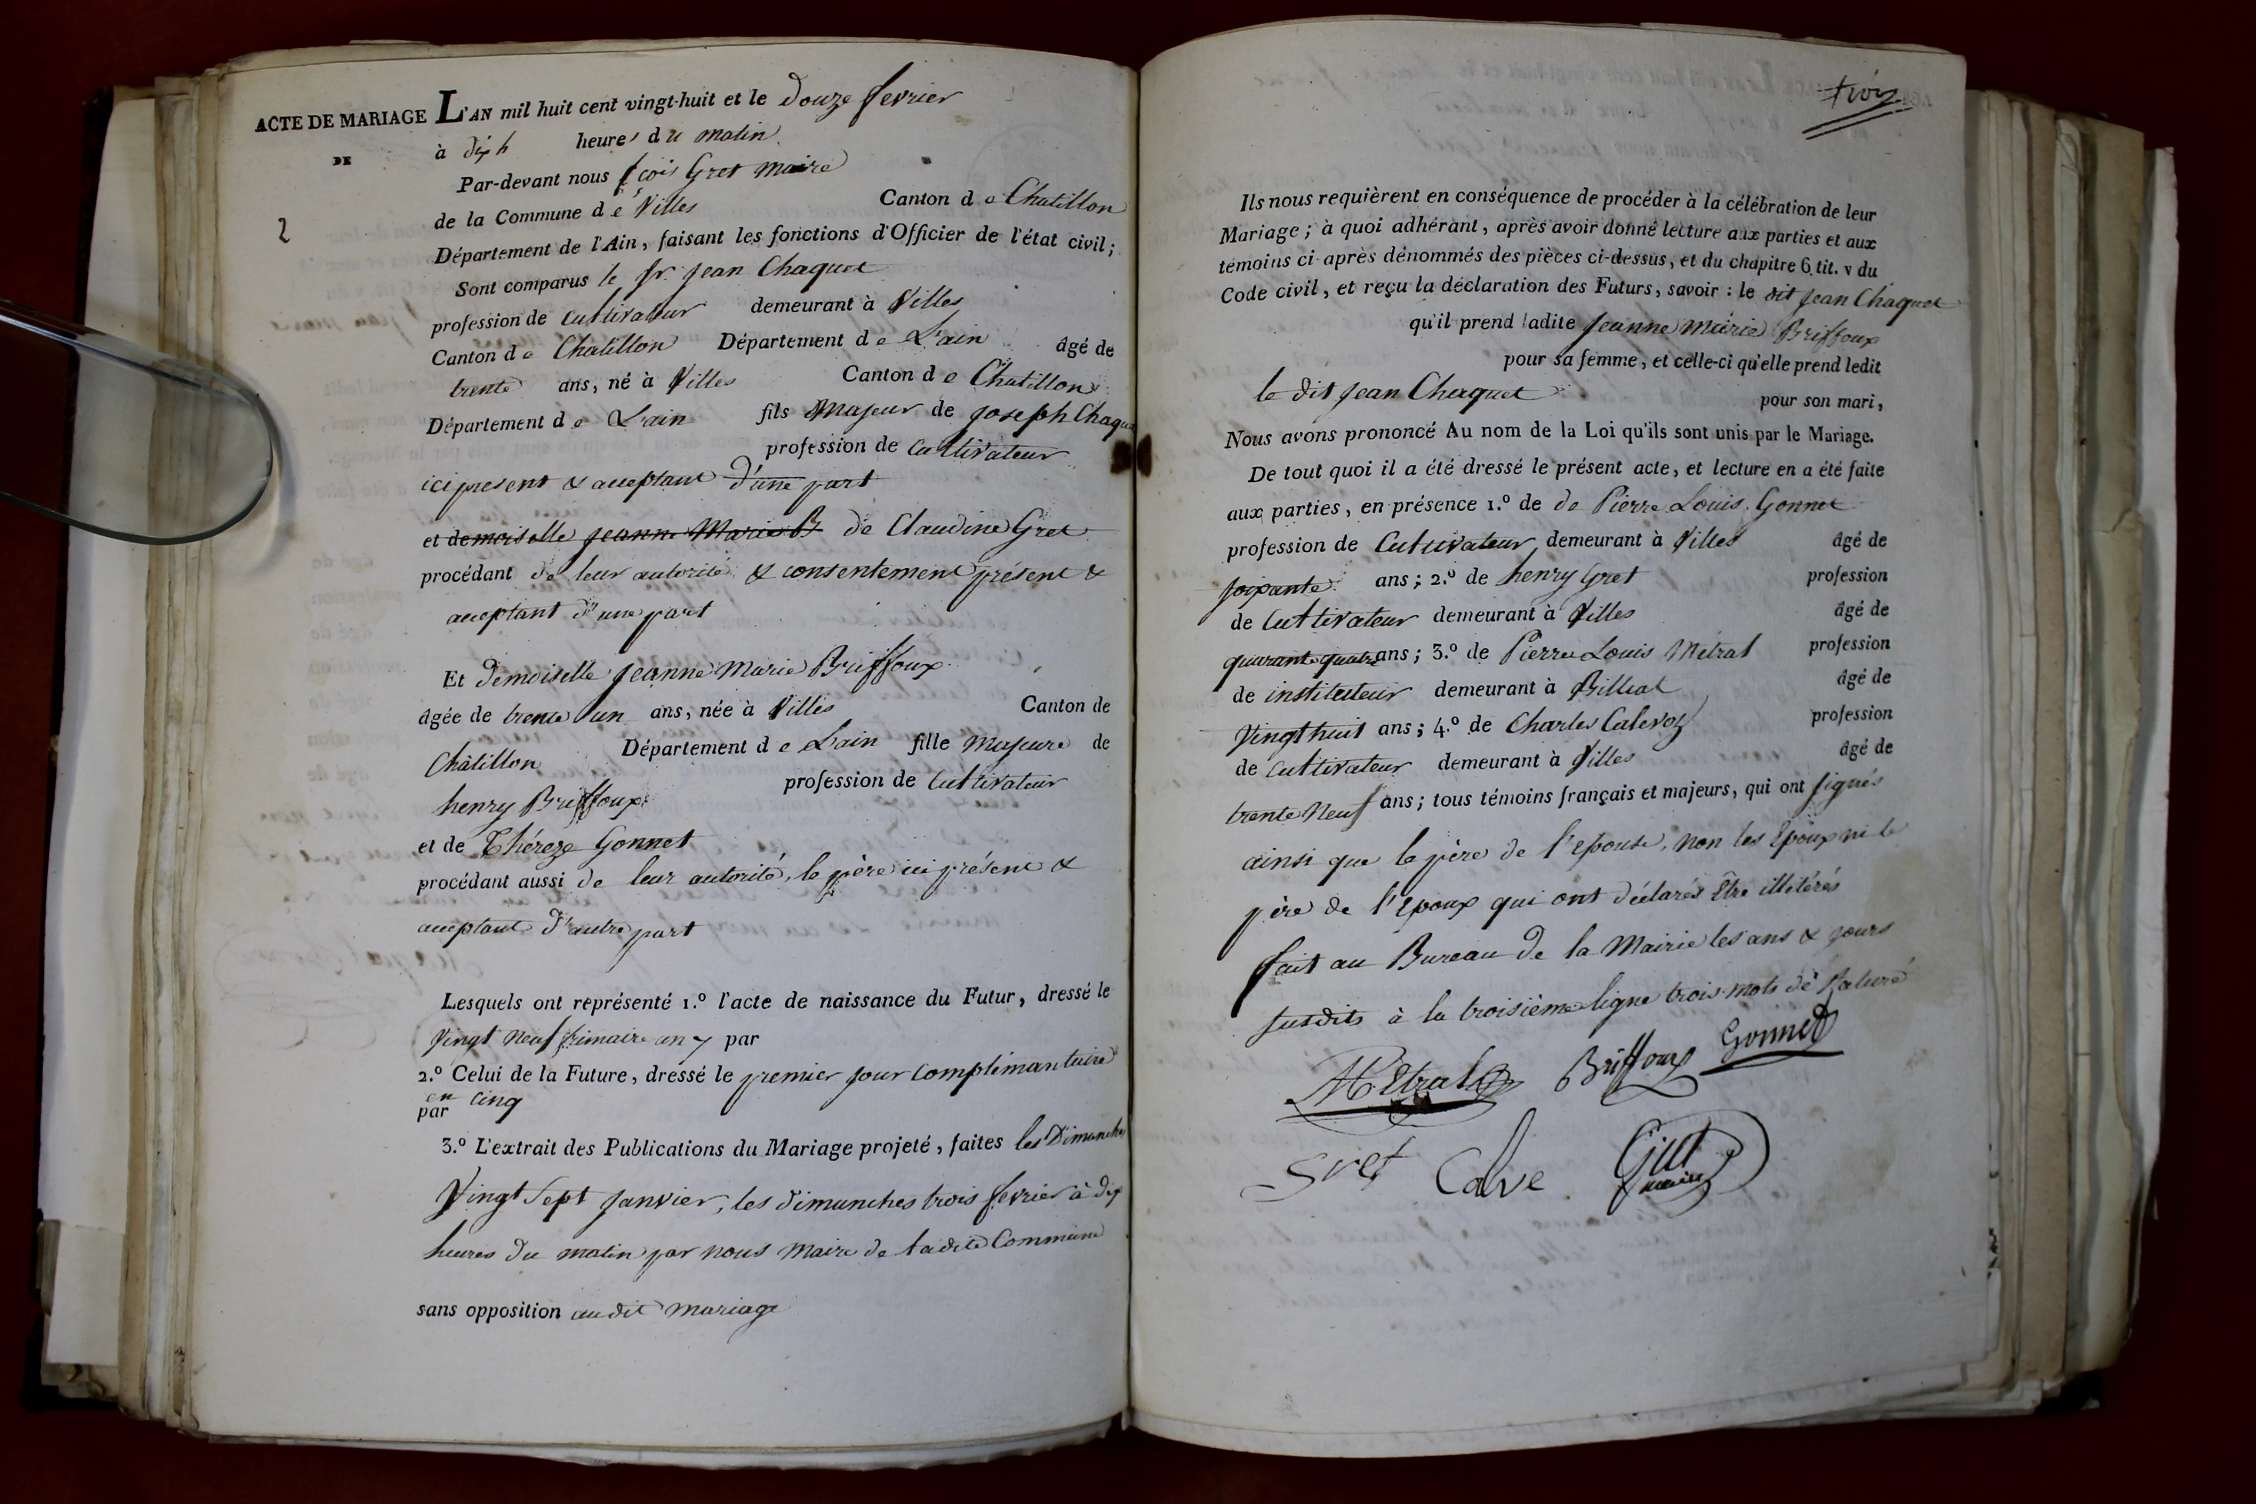 ACTE DE MARIAGE L'AN mil huit cent vingt-huit et le douze fevrier
DE
à dix h heures du matin
Par-devant nous fcois Gret maire
de la Commune de Villes Canton de Chatillon
2
Département de l'Ain, faisant les fonctions d'Officier de l'état civil;
Sont comparus le Sr. jean Chaquet
profession de Cultivateur demeurant à Villes
Canton de Chatillon Département de L'ain âgé de
trente ans, né à Villes Canton de Chatillon
Département de L'ain fils Majeur de joseph Chaque
profession de Cultivateur
ici present & acceptant d'une part
et demoiselle jeanne Marie B de Claudine Gret
procédant de leur autorité & consentement présent &
acceptant d'une part
Et demoiselle jeanne Marie Briffoux
âgée de trente un ans, née à Villes Canton de
Châtillon Département de L'ain fille majeure de
henry Briffoux profession de Cultivateur
et de Thérèze Gonnet
procédant aussi de leur autorité, le père ici présent &
acceptant d'autre part
Lesquels ont représenté 1.º l'acte de naissance du Futur, dressé le
Vingt neuf frimaire an 7 par
2.º Celui de la Future, dressé le premier jour complimantaire
en cinq
par
3.º L'extrait des Publications du Mariage projeté, faites les Dimanches
Vingt Sept janvier, les dimanches trois fevrier à dix
heures du matin par nous Maire de ladite Commune
sans opposition audit mariage
trois
Ils nous requièrent en conséquence de procéder à la célébration de leur
Mariage; à quoi adhérant, après avoir donné lecture aux parties et aux
témoins ci-après dénommés des pièces ci-dessus, et du chapitre 6 tit. v du
Code civil, et reçu la déclaration des Futurs, savoir: le dit jean Chaquet
qu'il prend ladite jeanne Marie Briffoux
pour sa femme, et celle-ci qu'elle prend ledit
le dit jean Chaquet pour son mari,
Nous avons prononcé Au nom de la Loi qu'ils sont unis par le Mariage.
De tout quoi il a été dressé le présent acte, et lecture en a été faite
aux parties, en présence 1.º de de Pierre Louis Gonnet
profession de Cultivateur demeurant à Villes âgé de
soixante ans; 2.º de henry Gret profession
de Cultivateur demeurant à Villes âgé de
quarante quatre ans; 3.º de Pierre Louis Métral profession
de instituteur demeurant à Billiat âgé de
Vingt huit ans; 4.º de Charles profession
de Cultivateur demeurant à Villes âgé de
trente Neuf ans; tous témoins français et majeurs, qui ont signés
ainsi que le père de l'epouse, non les Epoux ni le
père de l'Epoux qui ont déclarés être illetérés
fait au Bureau de la Mairie les ans & jours
susdits à la troisième ligne trois mots de Raturé
Métral Briffoux Gonnet
Gret Calve Gret
maire